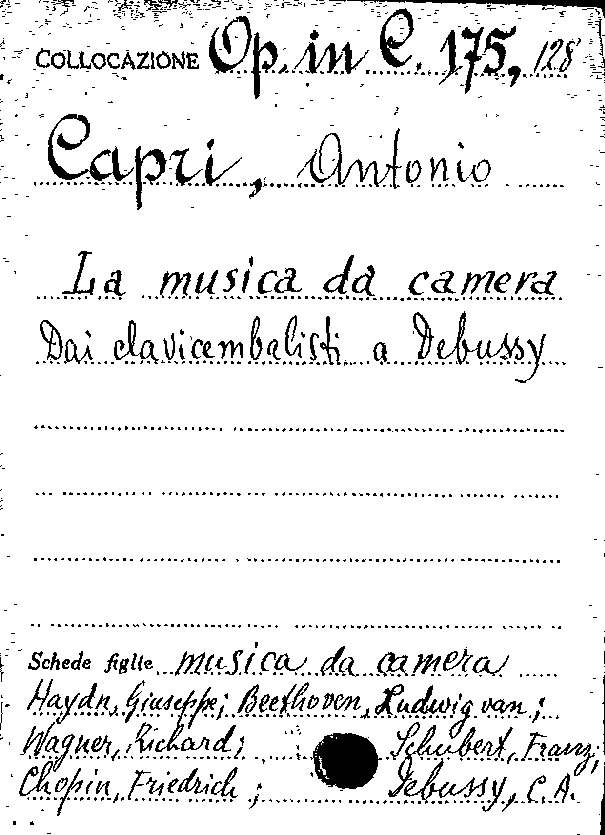 COLLOCAZIONE Op. in C. 175, 128
Capri, Antonio
La musica da camera
Dai clavicembalisti a Debussy
Schede figlie musica da camera
Haydn, Giuseppe; Beethoven, Ludwig van;
Wagner, Richard; Schubert, Franz;
Chopin, Friedrich; Debussy, C.A.